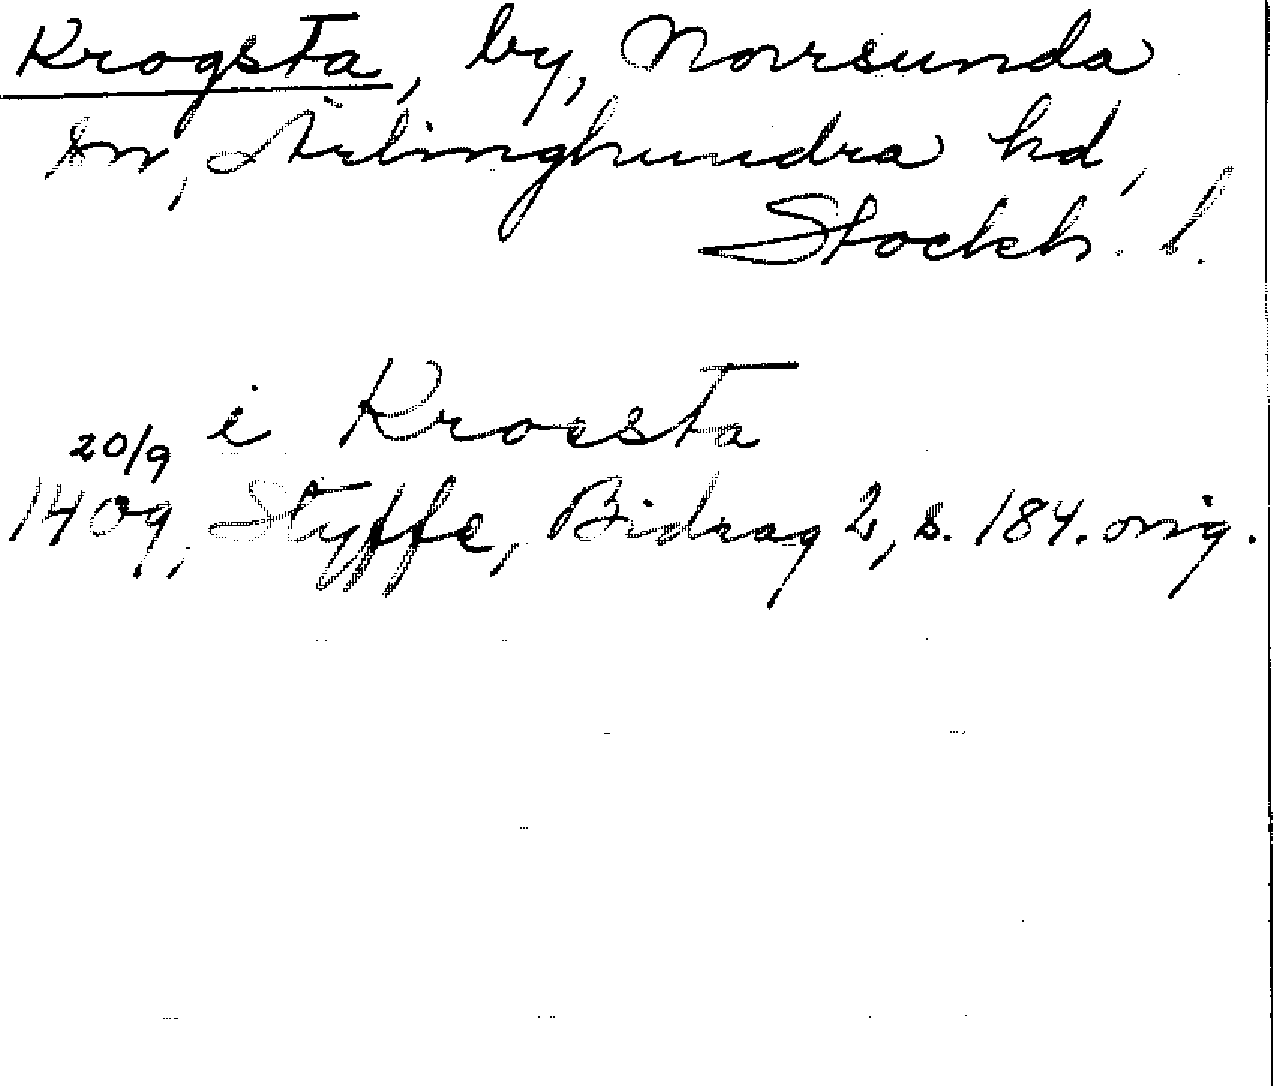 Krogsta, by, Norrsunda
sn, Ärlinghundra hd,
Stockh. l.
i Krocsta
20/9
1409, Styffe, Bidrag 2, s. 184. orig.